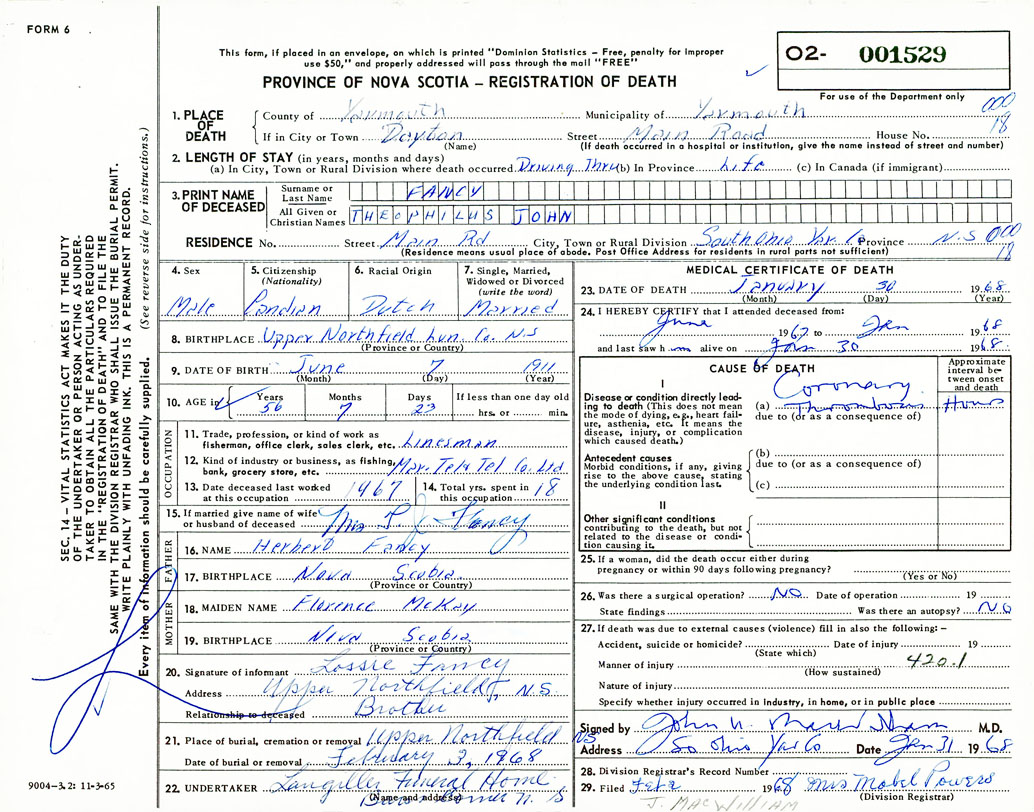 FORM 6
This form, if placed in an envelope, on which is printed "Dominion Statistics – Free, penalty for improper
use $50," and properly addressed will pass through the mail "FREE"
PROVINCE OF NOVA SCOTIA – REGISTRATION OF DEATH
O2- 001529
For use of the Department only
000
18
SEC. 14 – VITAL STATISTICS ACT MAKES IT THE DUTY
OF THE UNDERTAKER OR PERSON ACTING AS UNDER-
TAKER TO OBTAIN ALL THE PARTICULARS REQUIRED
IN THE "REGISTRATION OF DEATH" AND TO FILE THE
SAME WITH THE DIVISION REGISTRAR WHO SHALL ISSUE THE BURIAL PERMIT.
WRITE PLAINLY WITH UNFADING INK. THIS IS A PERMANENT RECORD.
Every item of information should be carefully supplied. (See reverse side for instructions.)
1. PLACE OF DEATH
County of Yarmouth Municipality of Yarmouth
If in City or Town Dayton Street Main Road House No.
(Name) (If death occurred in a hospital or institution, give the name instead of street and number)
2. LENGTH OF STAY (in years, months and days)
(a) In City, Town or Rural Division where death occurred Driving Thru (b) In Province Life (c) In Canada (if immigrant)
3. PRINT NAME OF DECEASED
Surname or Last Name FANCY
All Given or Christian Names THEOPHILUS JOHN
RESIDENCE No. Street Main Rd City, Town or Rural Division South Ohio Yar. Co Province N.S 000
(Residence means usual place of abode. Post Office Address for residents in rural parts not sufficient) 18
4. Sex Male
5. Citizenship (Nationality) Candian
6. Racial Origin Dutch
7. Single, Married, Widowed or Divorced (write the word) Married
8. BIRTHPLACE Upper Northfield Lun. Co. N.S
(Province or Country)
9. DATE OF BIRTH June 7 1911
(Month) (Day) (Year)
10. AGE in Years 56 Months 7 Days 23 If less than one day old hrs. or min.
OCCUPATION
11. Trade, profession, or kind of work as fisherman, office clerk, sales clerk, etc. Linesman
12. Kind of industry or business, as fishing, bank, grocery store, etc. Mar. Tel & Tel Co. Ltd
13. Date deceased last worked at this occupation 1967
14. Total yrs. spent in this occupation 18
15. If married give name of wife or husband of deceased Mrs T. J Fancy
FATHER
16. NAME Herbert Fancy
17. BIRTHPLACE Nova Scobia
(Province or Country)
MOTHER
18. MAIDEN NAME Florence McKay
19. BIRTHPLACE Nova Scobia
(Province or Country)
20. Signature of informant Fancy
Address Upper Northfield, N.S.
Relationship to deceased Brother
21. Place of burial, cremation or removal Upper Northfield
Date of burial or removal February 2, 1968 NS
22. UNDERTAKER Funeral Home
(Name and address) N. S
MEDICAL CERTIFICATE OF DEATH
23. DATE OF DEATH January 30 1968
(Month) (Day) (Year)
24. I HEREBY CERTIFY that I attended deceased from:
June 1967 to Jan 1968
and last saw him alive on Jan 30 1968
CAUSE OF DEATH
Approximate interval between onset and death
I
Disease or condition directly lead-
ing to death (This does not
mean the mode of dying, e.g., heart fail-
ure, asthenia, etc. It means the
disease, injury, or complication
which caused death.)
(a) Coronary Thrombosis Hours
due to (or as a consequence of)
Antecedent causes
Morbid conditions, if any, giving
rise to the above cause, stating
the underlying condition last.
(b)
due to (or as a consequence of)
(c)
II
Other significant conditions
contributing to the death, but not
related to the disease or condi-
tion causing it.
25. If a woman, did the death occur either during
pregnancy or within 90 days following pregnancy?
(Yes or No)
26. Was there a surgical operation? NO Date of operation 19
State findings Was there an autopsy? NO
27. If death was due to external causes (violence) fill in also the following:–
Accident, suicide or homicide? Date of injury 19
(State which)
Manner of injury 420.1
(How sustained)
Nature of injury
Specify whether injury occurred in industry, in home, or in public place
Signed by John M.D.
Address So Ohio Yar Co Date Jan 31 1968
28. Division Registrar's Record Number
29. Filed Feb 2 1968 Mrs Mabel Powers
(Division Registrar)
J. MACWILLIAM
9004-3.2: 11-3-65